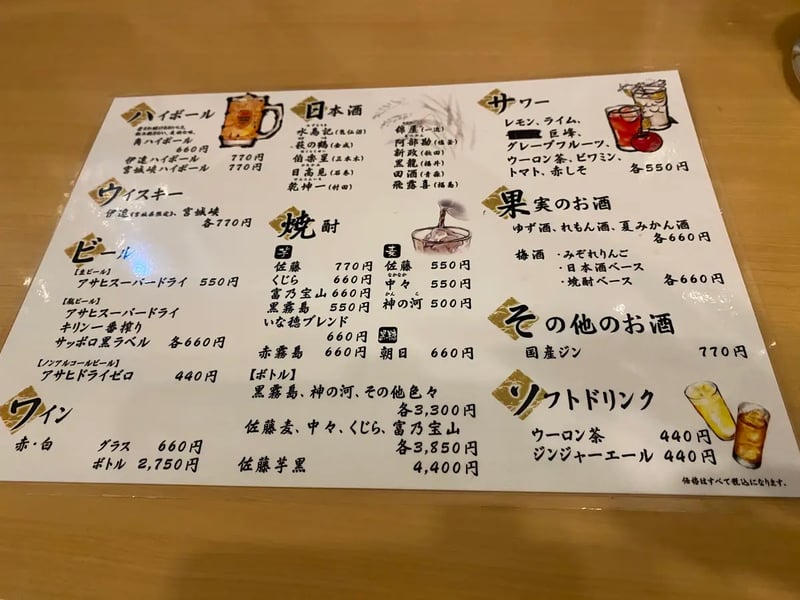 ハイボール
角ハイボール
660円
伊達ハイボール 770円
宮城峡ハイボール 770円
ウイスキー
伊達(宮城県限定)、宮城峡
各770円
ビール
【生ビール】
アサヒスーパードライ 550円
【瓶ビール】
アサヒスーパードライ
キリン一番搾り
サッポロ黒ラベル 各660円
【ノンアルコールビール】
アサヒドライゼロ 440円
ワイン
赤・白 グラス 660円
ボトル 2,750円
日本酒
水鳥記(気仙沼)
萩の鶴(金成)
伯楽星(三本木)
日高見(石巻)
乾坤一(村田)
錦屋(一迫)
阿部勘(塩釜)
新政(秋田)
黒龍(福井)
田酒(青森)
飛露喜(福島)
焼酎
芋
佐藤 770円
くじら 660円
富乃宝山 660円
黒霧島 550円
いな穂ブレンド
660円
赤霧島 660円
麦
佐藤 550円
なかなか
中々 550円
かん
神の河 500円
黒糖
朝日 660円
【ボトル】
黒霧島、神の河、その他色々
各3,300円
佐藤麦、中々、くじら、富乃宝山
各3,850円
佐藤芋黒 4,400円
サワー
レモン、ライム、
巨峰、
グレープフルーツ、
ウーロン茶、ビワミン、
トマト、赤しそ 各550円
果実のお酒
ゆず酒、れもん酒、夏みかん酒
各660円
梅酒 ・みぞれりんご
・日本酒ベース
・焼酎ベース 各660円
その他のお酒
国産ジン 770円
ソフトドリンク
ウーロン茶 440円
ジンジャーエール 440円
価格はすべて税込になります。